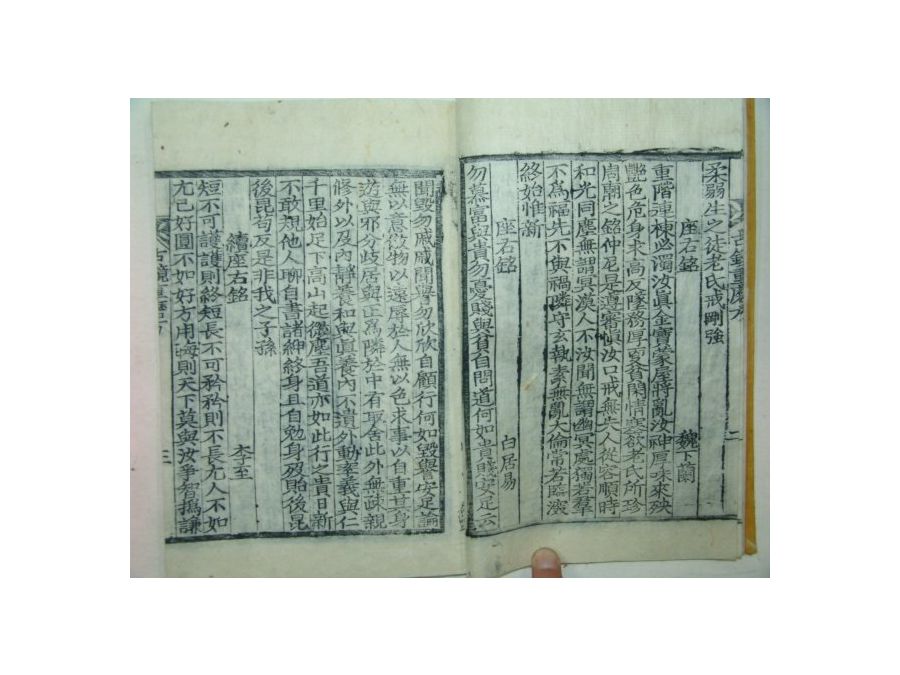 柔弱生之徒老氏戒剛強
座右銘 魏卞蘭
重階連棟必濁汝眞金寶滿屋將亂汝神厚味來殃
艶色危身求高反墜務厚更貧閑情塞欲老氏所珍
周廟之銘仲尼是遵審愼汝口戒無失人從容順時
和光同塵無謂冥漠人不汝聞無謂幽冥處獨若羣
不為福先不與禍隣守玄執素無亂大倫常若臨深
終始惟新
座右銘 白居易
勿慕富與貴勿憂賤與貧自問道何如貴賤安足云
聞毀勿戚戚聞譽勿欣欣自顧行何如毀譽安足論
無以意傲物以遠辱於人無以色求事以自重其身
遊與邪分歧居與正為隣於中有取舍此外無疎親
修外以及內靜養和與眞養內不遺外動率義與仁
千里始足下高山起微塵吾道亦如此行之貴日新
不敢規他人聊自書諸紳終身且自勉身歿貽後昆
後昆苟反是非我之子孫
續座右銘 李至
短不可護護則終短長不可矜矜則不長尤人不如
尤己好圓不如好方用晦則天下莫與汝爭智撝謙
二
三